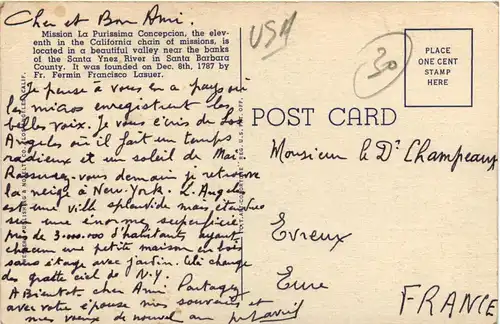 Cher et Bon Ami.
Mission La Purissima Concepcion, the elev-
enth in the California chain of missions, is
located in a beautiful valley near the banks
of the Santa Ynez River in Santa Barbara
County. It was founded on Dec. 8th, 1787 by
Fr. Fermin Francisco Lasuer.
Je pense à vous en a pays où
les micros enregistrent les
belles voix. Je vous écris de Los
Angeles où il fait un temps
radieux et un soleil de Mai
Rassurez-vous demain je retrouve
la neige à New-York. L. Angeles
est une ville splendide mais étendue
sur une énorme superficie
près de 3.000.000 d'habitants ayant
chacun une petite maison en bois
sans étage avec jardin. Celà change
des gratte ciel de N.Y.
A Bientot. cher Ami Partagez
avec votre épouse mes souvenirs et
mes vœux de nouvel an
USA
30
PLACE
ONE CENT
STAMP
HERE
POST CARD
Monsieur le Dr Champeaux
Evreux
Eure
FRANCE